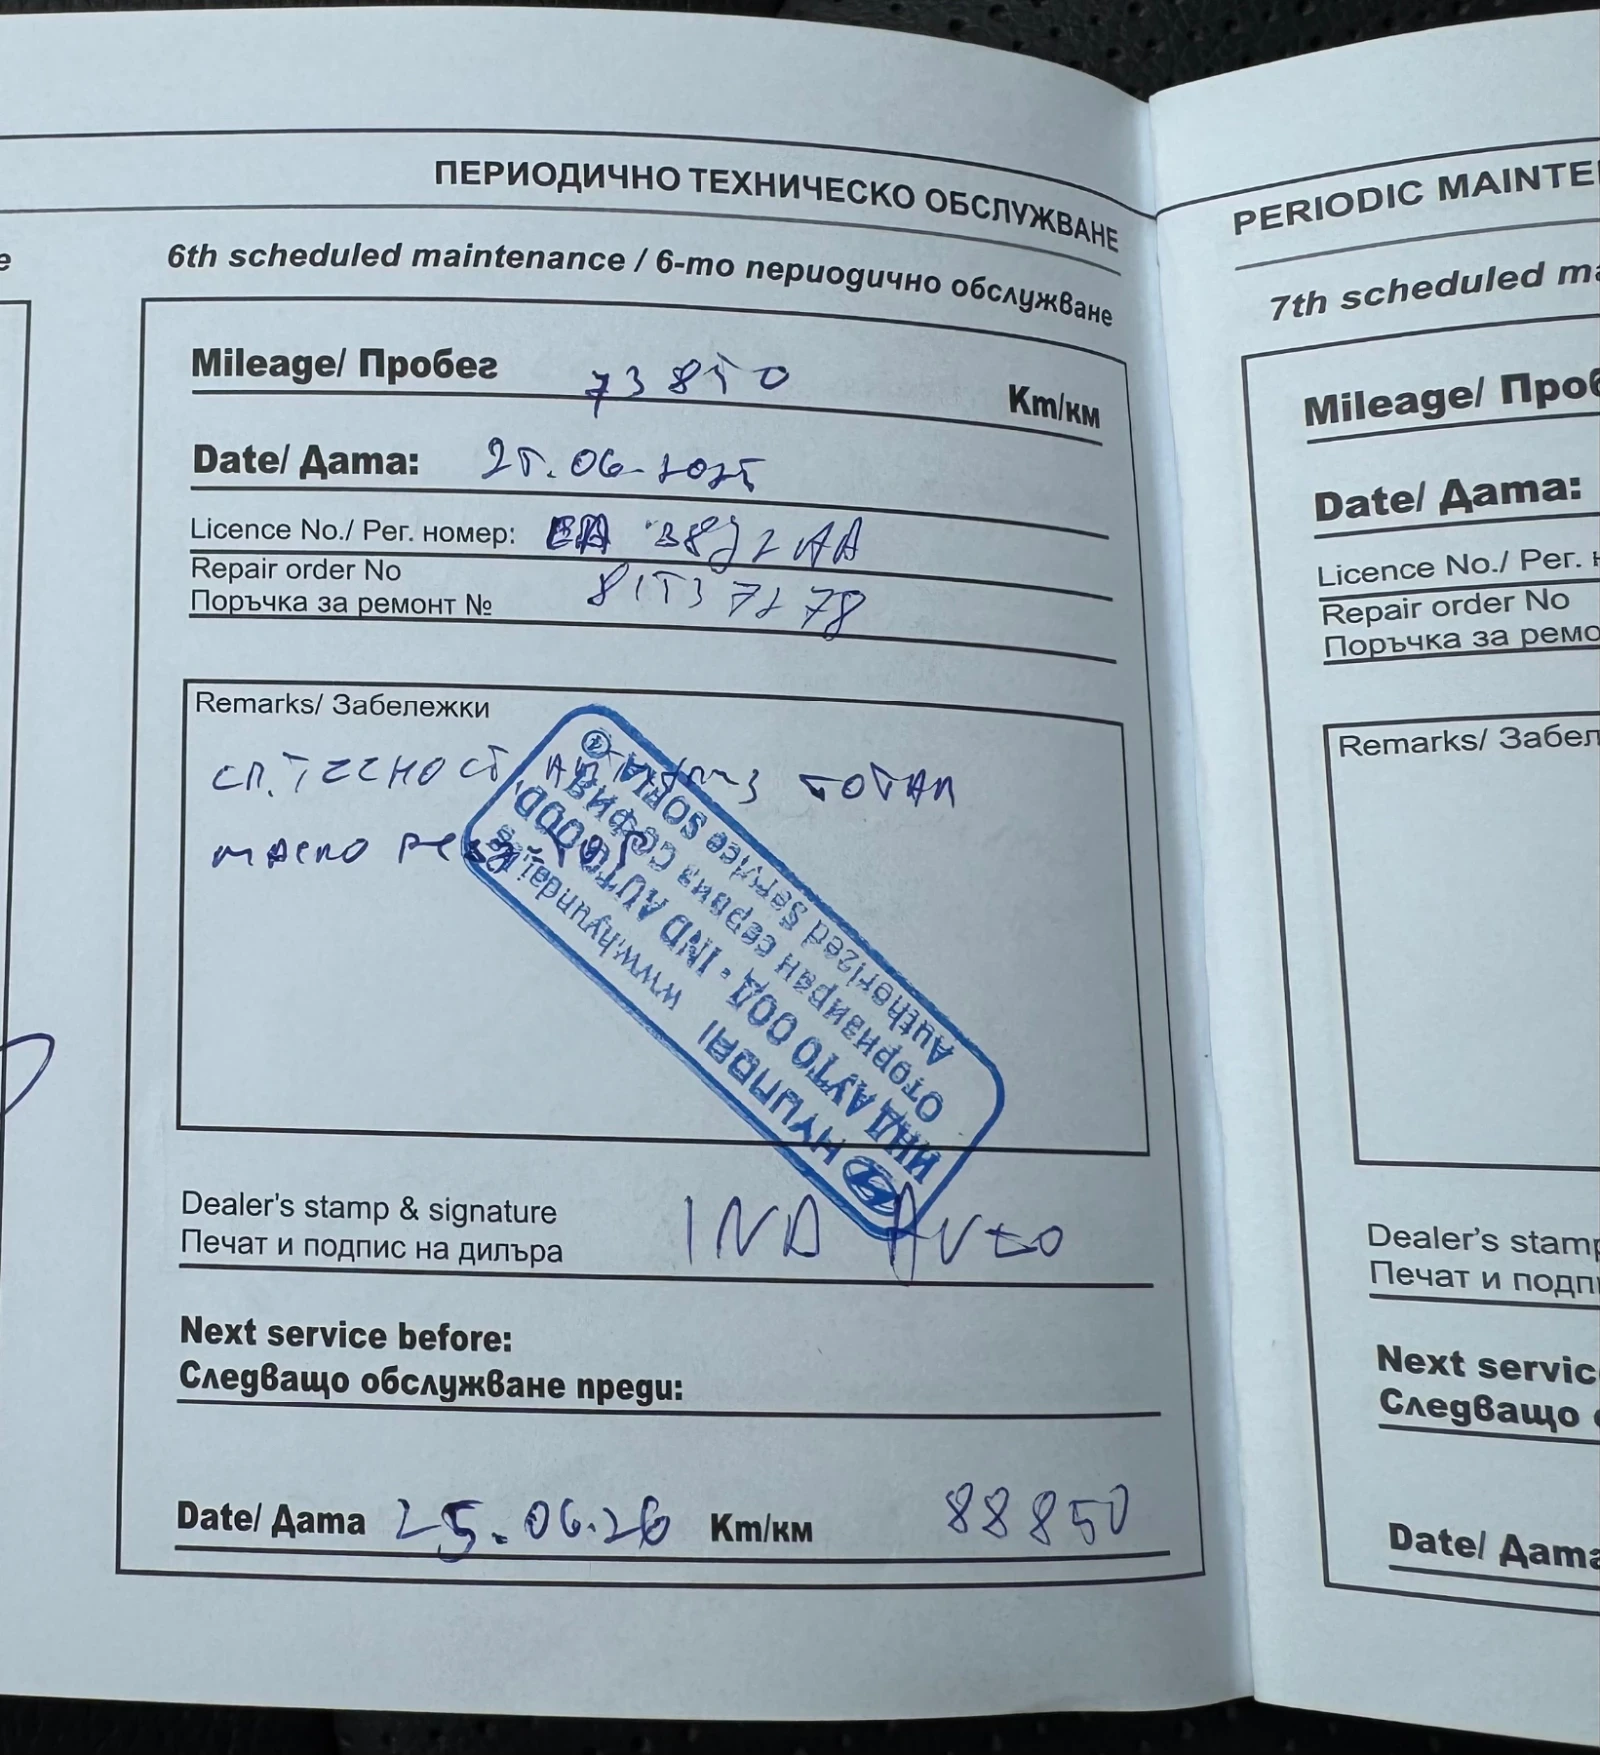 ПЕРИОДИЧНО ТЕХНИЧЕСКО ОБСЛУЖВАНЕ
6th scheduled maintenance / 6-то периодично обслужване
Mileage/ Пробег 73850 Km/км
Date/ Дата: 25.06.2025
Licence No./ Рег. номер: AA
Repair order No
Поръчка за ремонт № 81537278
Remarks/ Забележки
сп. течност тотал
масло
HYUNDAI www.hyundai
ИНД АУТО ООД • IND AUTO OOD
Оторизиран сервиз София
Authorized Service SOFIA 4
Dealer's stamp & signature
Печат и подпис на дилъра IND Auto
Next service before:
Следващо обслужване преди:
Date/ Дата 25.06.26 Km/км 88850
PERIODIC MAINTE
7th scheduled ma
Mileage/ Проб
Date/ Дата:
Licence No./ Рег.
Repair order No
Поръчка за ремо
Remarks/ Забел
Dealer's stamp
Печат и подпи
Next servic
Следващо
Date/ Дата